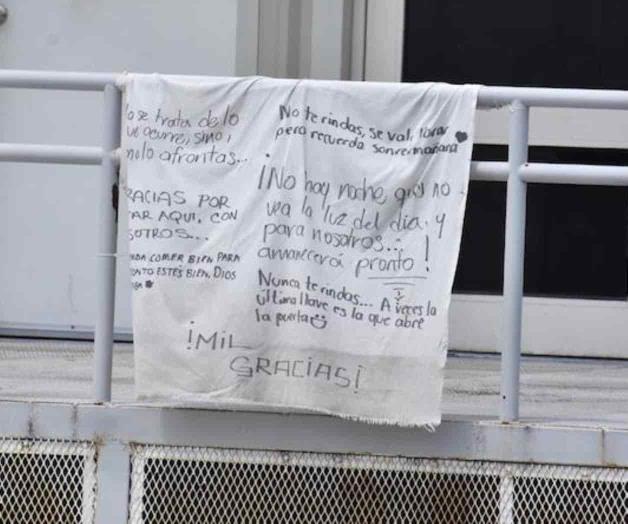 o se trata de lo
ue ocurre, sino,
molo afrontas...
RACIAS POR
AR AQUI, CON
SOTROS...
DA COMER BIEN PARA
ONTO ESTÉS BIEN, DIOS
No te rindas, se val, llorar
pero recuerda sonreir mañana
¡No hay noche, que no
vea la luz del día. y
para nosotros...
amanecerá pronto!
Nunca te rindas... A veces la
última llave es la que abre
la puerta
¡MIL
GRACIAS!